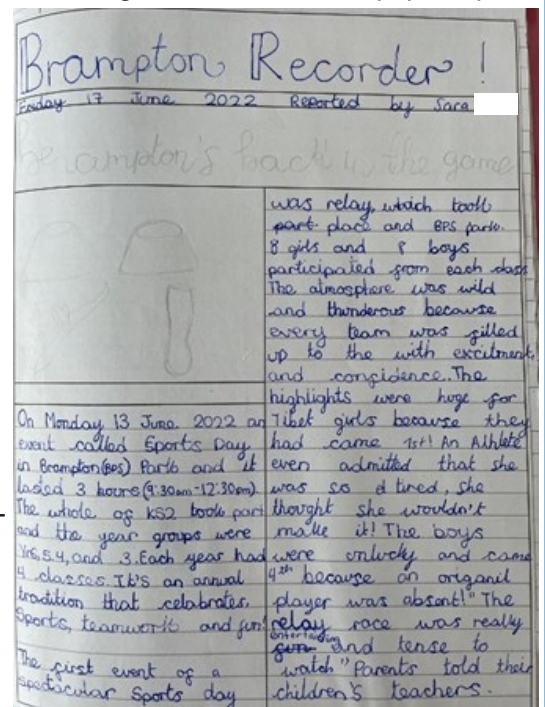 Brampton Recorder!
Friday 17 June 2022 Reported by Sara
Brampton's back in the game
On Monday 13 June 2022 an
event called Sports Day
in Brampton(BPS) Park and it
lasted 3 hours (9:30am-12:30pm).
The whole of KS2 took part
and the year groups were
Yr6,5,4, and 3. Each year had
4 classes. It's an annual
tradition that celabrates,
Sports, teamwork and fun!
The first event of a
spectacular Sports day
was relay, which took
part place and BPS park.
8 girls and 8 boys
participated from each class
The atmosphere was wild
and thunderous because
every team was filled
up to the with excitment
and confidence. The
highlights were huge for
Tibet girls because they
had came 1st! An Athlete
even admitted that she
was so tired, she
thought she wouldn't
make it! The boys
were unlucky and came
4th because an origanil
player was absent!" The
relay race was really
entertaining
fun and tense to
watch" Parents told their
children's teachers.